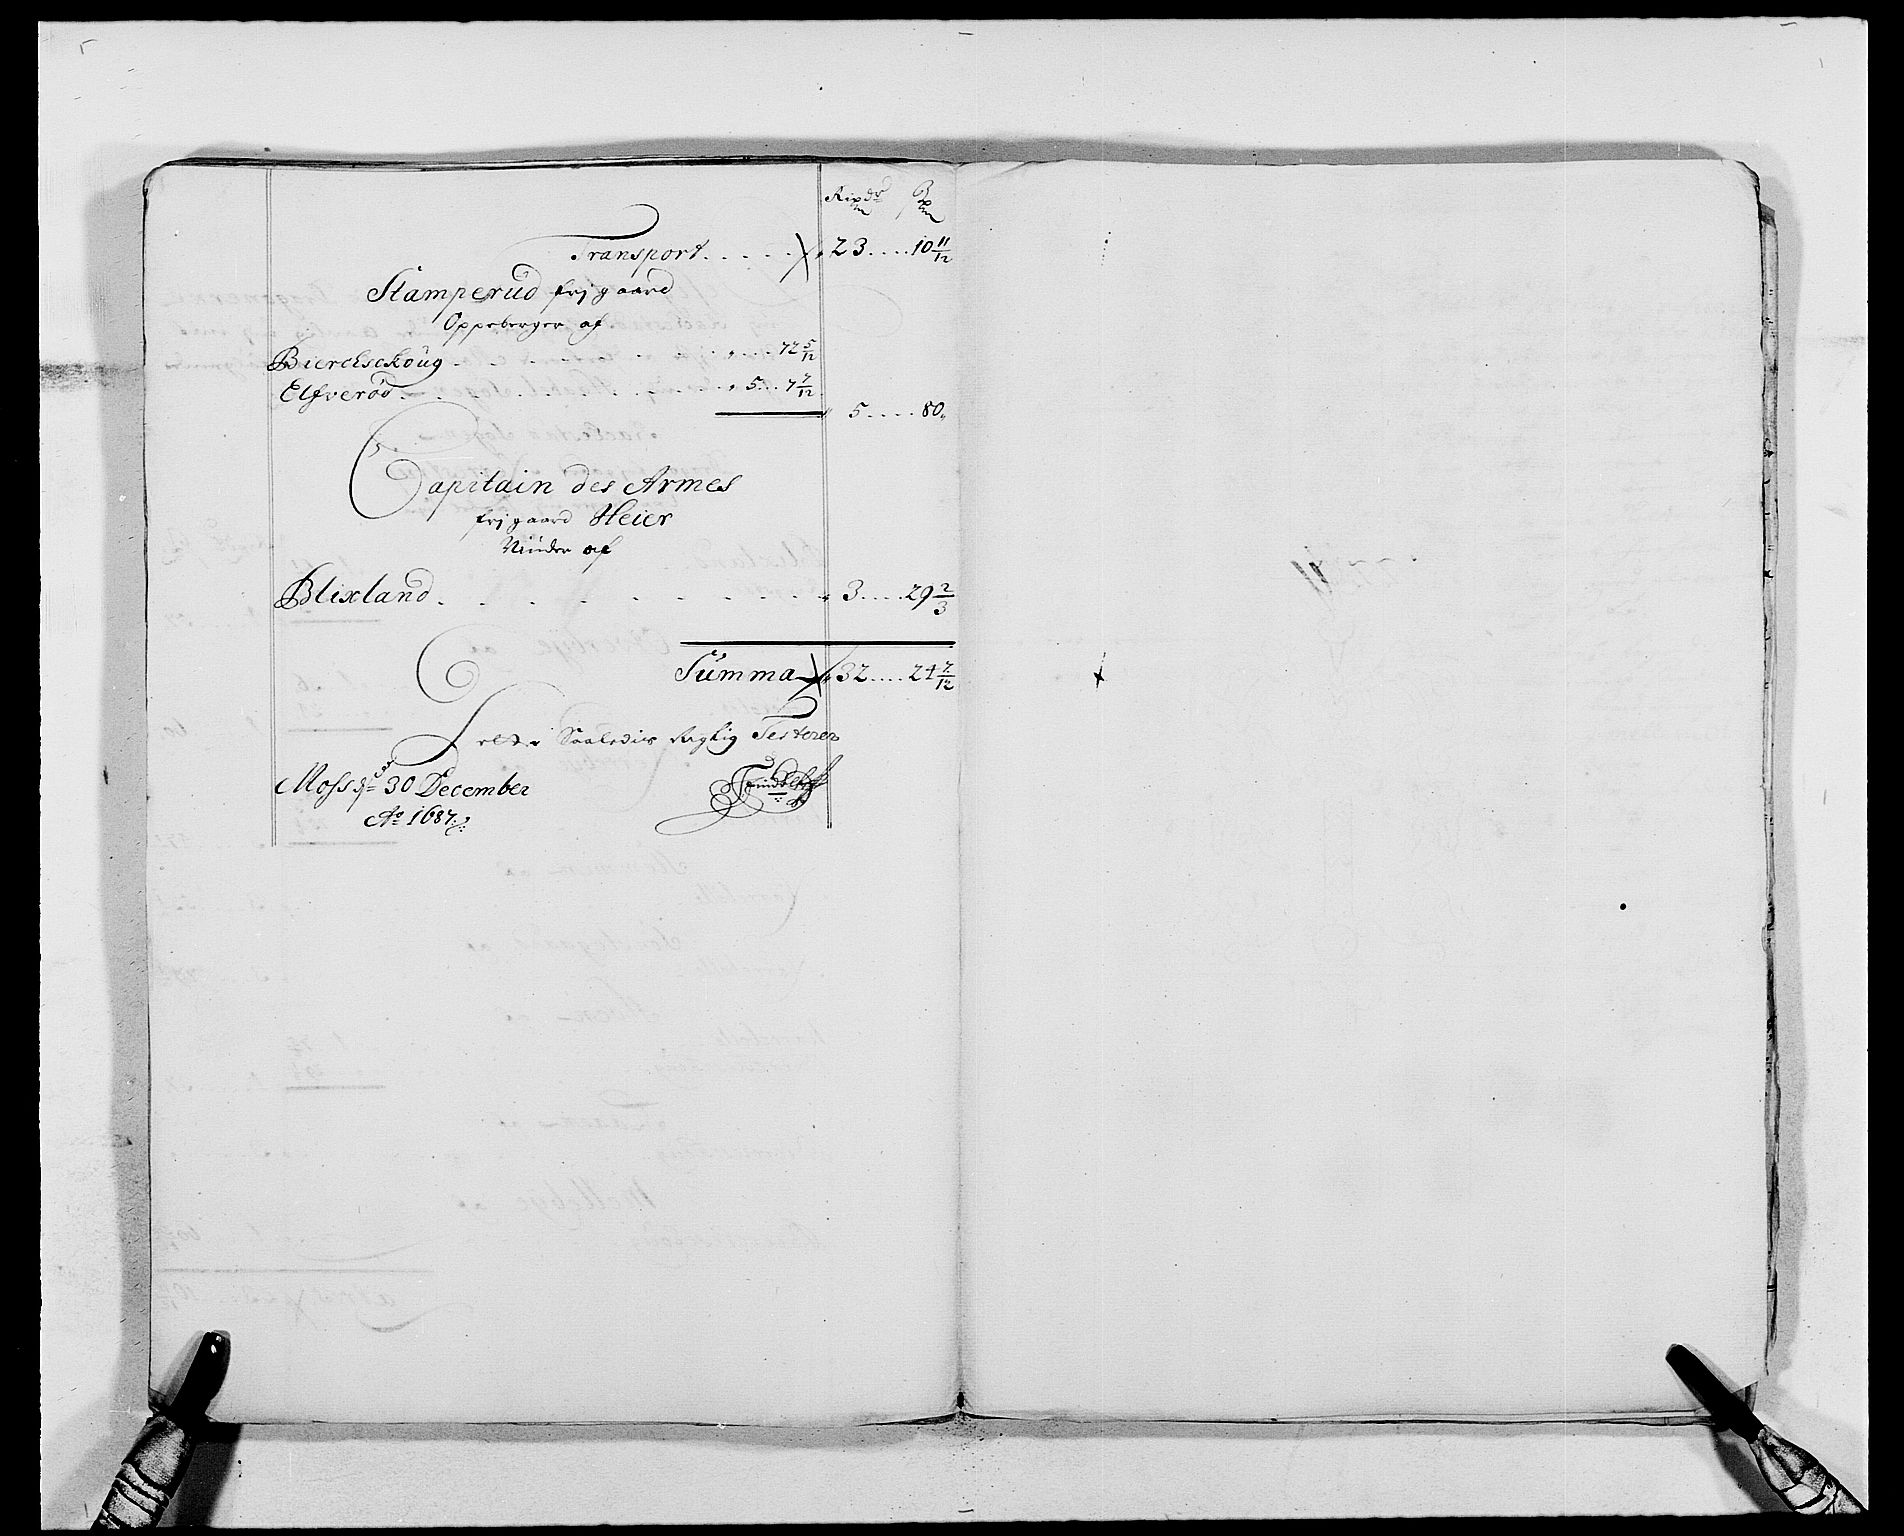 Rixdr ß
Transport . . . . . 23 . . . . 10 11/12
Stamperüd frj gaard
Oppeberger af
Bierchschoüg . . . . . . . . 72 5/12
Elfverød . . . . . . . . 5 . . . 7 7/12
5 . . . . 80
Capitain des Armes
frj gaard Heier
Niüder af
Blixland . . . . . . . . . 3 . . . . 29 2/3
Summa 32 . . . . 24 7/12
Dette Saaledis Rigtig Testerer
Moss d. 30 December
Ao 1687